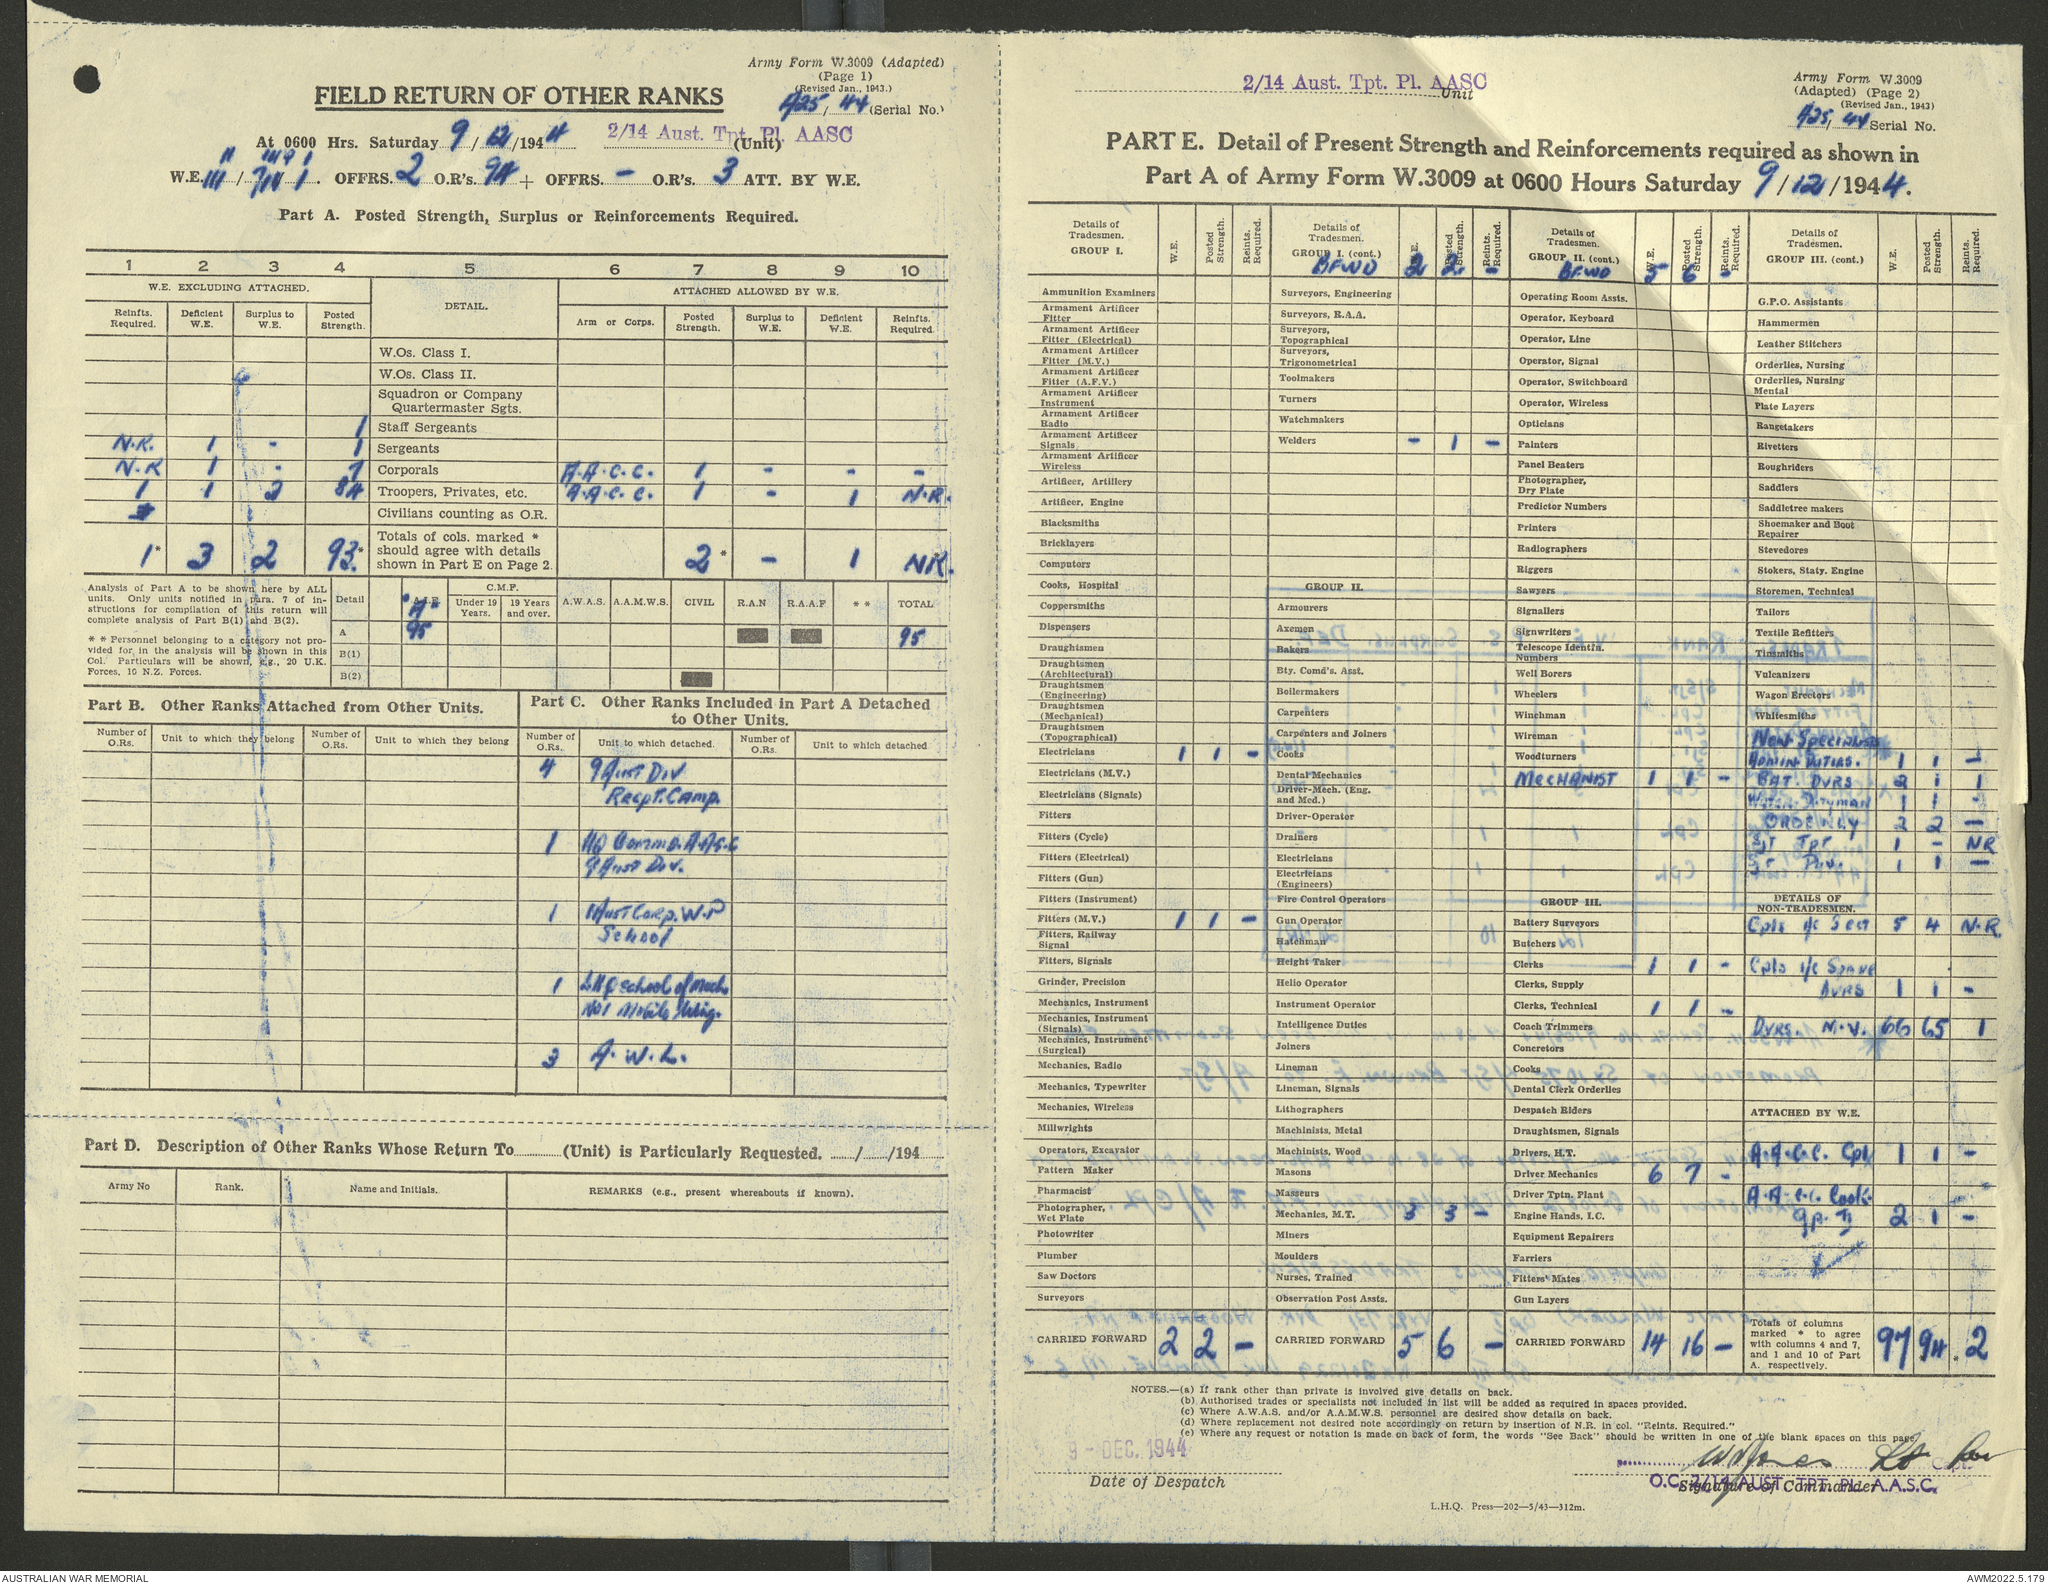 Army Form W.3009 (Adapted)
(Page 1)
(Revised Jan., 1943.)
FIELD RETURN OF OTHER RANKS
A25/44 (Serial No.)
At 0600 Hrs. Saturday 9/12/1944 2/14 Aust. Tpt. Pl. AASC (Unit)
W.E. OFFRS. 2 O.R's. 94 + OFFRS. - O.R's. 3 ATT. BY W.E.
Part A. Posted Strength, Surplus or Reinforcements Required.
1 2 3 4 5 6 7 8 9 10
W.E. EXCLUDING ATTACHED. DETAIL. ATTACHED ALLOWED BY W.E.
Reinfts. Required. Deficient W.E. Surplus to W.E. Posted Strength. Arm or Corps. Posted Strength. Surplus to W.E. Deficient W.E. Reinfts. Required.
W.Os. Class I.
W.Os. Class II.
Squadron or Company Quartermaster Sgts.
1 Staff Sergeants
N.R. 1 - 1 Sergeants
N.R 1 - 7 Corporals A.A.C.C. 1 - - -
1 1 2 84 Troopers, Privates, etc. A.A.C.C. 1 - 1 N.R.
Civilians counting as O.R.
1* 3 2 93* Totals of cols. marked * should agree with details shown in Part E on Page 2. 2* - 1 NR.
Analysis of Part A to be shown here by ALL units. Only units notified in para. 7 of instructions for compilation of this return will complete analysis of Part B(1) and B(2).
** Personnel belonging to a category not provided for in the analysis will be shown in this Col. Particulars will be shown, e.g., 20 U.K. Forces, 10 N.Z. Forces.
Detail A.I.F. C.M.F. Under 19 Years. 19 Years and over. A.W.A.S. A.A.M.W.S. CIVIL R.A.N R.A.A.F ** TOTAL
A 95 95
B(1)
B(2)
Part B. Other Ranks Attached from Other Units.
Number of O.Rs. Unit to which they belong Number of O.Rs. Unit to which they belong
Part C. Other Ranks Included in Part A Detached to Other Units.
Number of O.Rs. Unit to which detached. Number of O.Rs. Unit to which detached
4 9 Aust Div
Recpt. Camp.
1 HQ Comma. A.A.S.C
9 Aust Div.
1 1 Aust Corp. W.P
School
1 LHQ School of Mech.
No 1 Mobile Wing.
3 A.W.L.
Part D. Description of Other Ranks Whose Return To (Unit) is Particularly Requested. / /194
Army No Rank. Name and Initials. REMARKS (e.g., present whereabouts if known).
2/14 Aust. Tpt. Pl. AASC
Unit
Army Form W.3009
(Adapted) (Page 2)
(Revised Jan., 1943)
A25/44 Serial No.
PART E. Detail of Present Strength and Reinforcements required as shown in
Part A of Army Form W.3009 at 0600 Hours Saturday 9/12/1944.
Details of Tradesmen. GROUP I. W.E. Posted Strength. Reints. Required.
Ammunition Examiners
Armament Artificer Fitter
Armament Artificer Fitter (Electrical)
Armament Artificer Fitter (M.V.)
Armament Artificer Fitter (A.F.V.)
Armament Artificer Instrument
Armament Artificer Radio
Armament Artificer Signals
Armament Artificer Wireless
Artificer, Artillery
Artificer, Engine
Blacksmiths
Bricklayers
Computors
Cooks, Hospital
Coppersmiths
Dispensers
Draughtsmen
Draughtsmen (Architectural)
Draughtsmen (Engineering)
Draughtsmen (Mechanical)
Draughtsmen (Topographical)
Electricians 1 1 -
Electricians (M.V.)
Electricians (Signals)
Fitters
Fitters (Cycle)
Fitters (Electrical)
Fitters (Gun)
Fitters (Instrument)
Fitters (M.V.) 1 1 -
Fitters, Railway Signal
Fitters, Signals
Grinder, Precision
Mechanics, Instrument
Mechanics, Instrument (Signals)
Mechanics, Instrument (Surgical)
Mechanics, Radio
Mechanics, Typewriter
Mechanics, Wireless
Millwrights
Operators, Excavator
Pattern Maker
Pharmacist
Photographer, Wet Plate
Photowriter
Plumber
Saw Doctors
Surveyors
CARRIED FORWARD 2 2 -
Details of Tradesmen. GROUP I. (cont.) W.E. Posted Strength. Reints. Required.
BFWD 2 2 -
Surveyors, Engineering
Surveyors, R.A.A.
Surveyors, Topographical
Surveyors, Trigonometrical
Toolmakers
Turners
Watchmakers
Welders - 1 -
GROUP II.
Armourers
Axemen
Bakers
Bty. Comd's. Asst.
Boilermakers
Carpenters
Carpenters and Joiners
Cooks
Dental Mechanics
Driver-Mech. (Eng. and Med.)
Driver-Operator
Drainers
Electricians
Electricians (Engineers)
Fire Control Operators
Gun Operator
Hatchman
Height Taker
Helio Operator
Instrument Operator
Intelligence Duties
Joiners
Lineman
Lineman, Signals
Lithographers
Machinists, Metal
Machinists, Wood
Masons
Masseurs
Mechanics, M.T. 3 3 -
Miners
Moulders
Nurses, Trained
Observation Post Assts.
CARRIED FORWARD 5 6 -
Details of Tradesmen. GROUP II. (cont.) W.E. Posted Strength. Reints. Required.
BFWD 5 6 -
Operating Room Assts.
Operator, Keyboard
Operator, Line
Operator, Signal
Operator, Switchboard
Operator, Wireless
Opticians
Painters
Panel Beaters
Photographer, Dry Plate
Predictor Numbers
Printers
Radiographers
Riggers
Sawyers
Signallers
Signwriters
Telescope Identn. Numbers
Well Borers
Wheelers
Winchman
Wireman
Woodturners
MECHANIST 1 1 -
GROUP III.
Battery Surveyors
Butchers
Clerks 1 1 -
Clerks, Supply
Clerks, Technical 1 1 -
Coach Trimmers
Concretors
Cooks
Dental Clerk Orderlies
Despatch Riders
Draughtsmen, Signals
Drivers, H.T.
Driver Mechanics 6 7 -
Driver Tptn. Plant
Engine Hands, I.C.
Equipment Repairers
Farriers
Fitters' Mates
Gun Layers
CARRIED FORWARD 14 16 -
Details of Tradesmen. GROUP III. (cont.) W.E. Posted Strength. Reints. Required.
G.P.O. Assistants
Hammermen
Leather Stitchers
Orderlies, Nursing
Orderlies, Nursing Mental
Plate Layers
Rangetakers
Rivetters
Roughriders
Saddlers
Saddletree makers
Shoemaker and Boot Repairer
Stevedores
Stokers, Staty. Engine
Storemen, Technical
Tailors
Textile Refitters
Tinsmiths
Vulcanizers
Wagon Erectors
Whitesmiths
Non Specialists
Admin Duties. 1 1 -
BAT DVRS 2 1 1
Water Dutyman 1 1 -
ORDERLY 2 2 -
Sjt Tpt 1 - NR
1 1 -
DETAILS OF NON-TRADESMEN.
Cpls i/c Sect 5 4 N.R.
Cpls i/c Spare
DVRS 1 1 -
DVRS. M.V. 66 65 1
ATTACHED BY W.E.
A.A.C.C. Cpl 1 1 -
A.A.C.C. Cook
gp. II 2 1 -
Totals of columns marked * to agree with columns 4 and 7, and 1 and 10 of Part A. respectively. 97 94 2
NOTES.—(a) If rank other than private is involved give details on back.
(b) Authorised trades or specialists not included in list will be added as required in spaces provided.
(c) Where A.W.A.S. and/or A.A.M.W.S. personnel are desired show details on back.
(d) Where replacement not desired note accordingly on return by insertion of N.R. in col. "Reints. Required."
(e) Where any request or notation is made on back of form, the words "See Back" should be written in one of the blank spaces on this page.
9 - DEC. 1944
Date of Despatch
O.C. 2/14 AUST. TPT. PL. A.A.S.C.
Signature of Commander
L.H.Q. Press—202—5/43—312m.
AUSTRALIAN WAR MEMORIAL
AWM2022.5.179